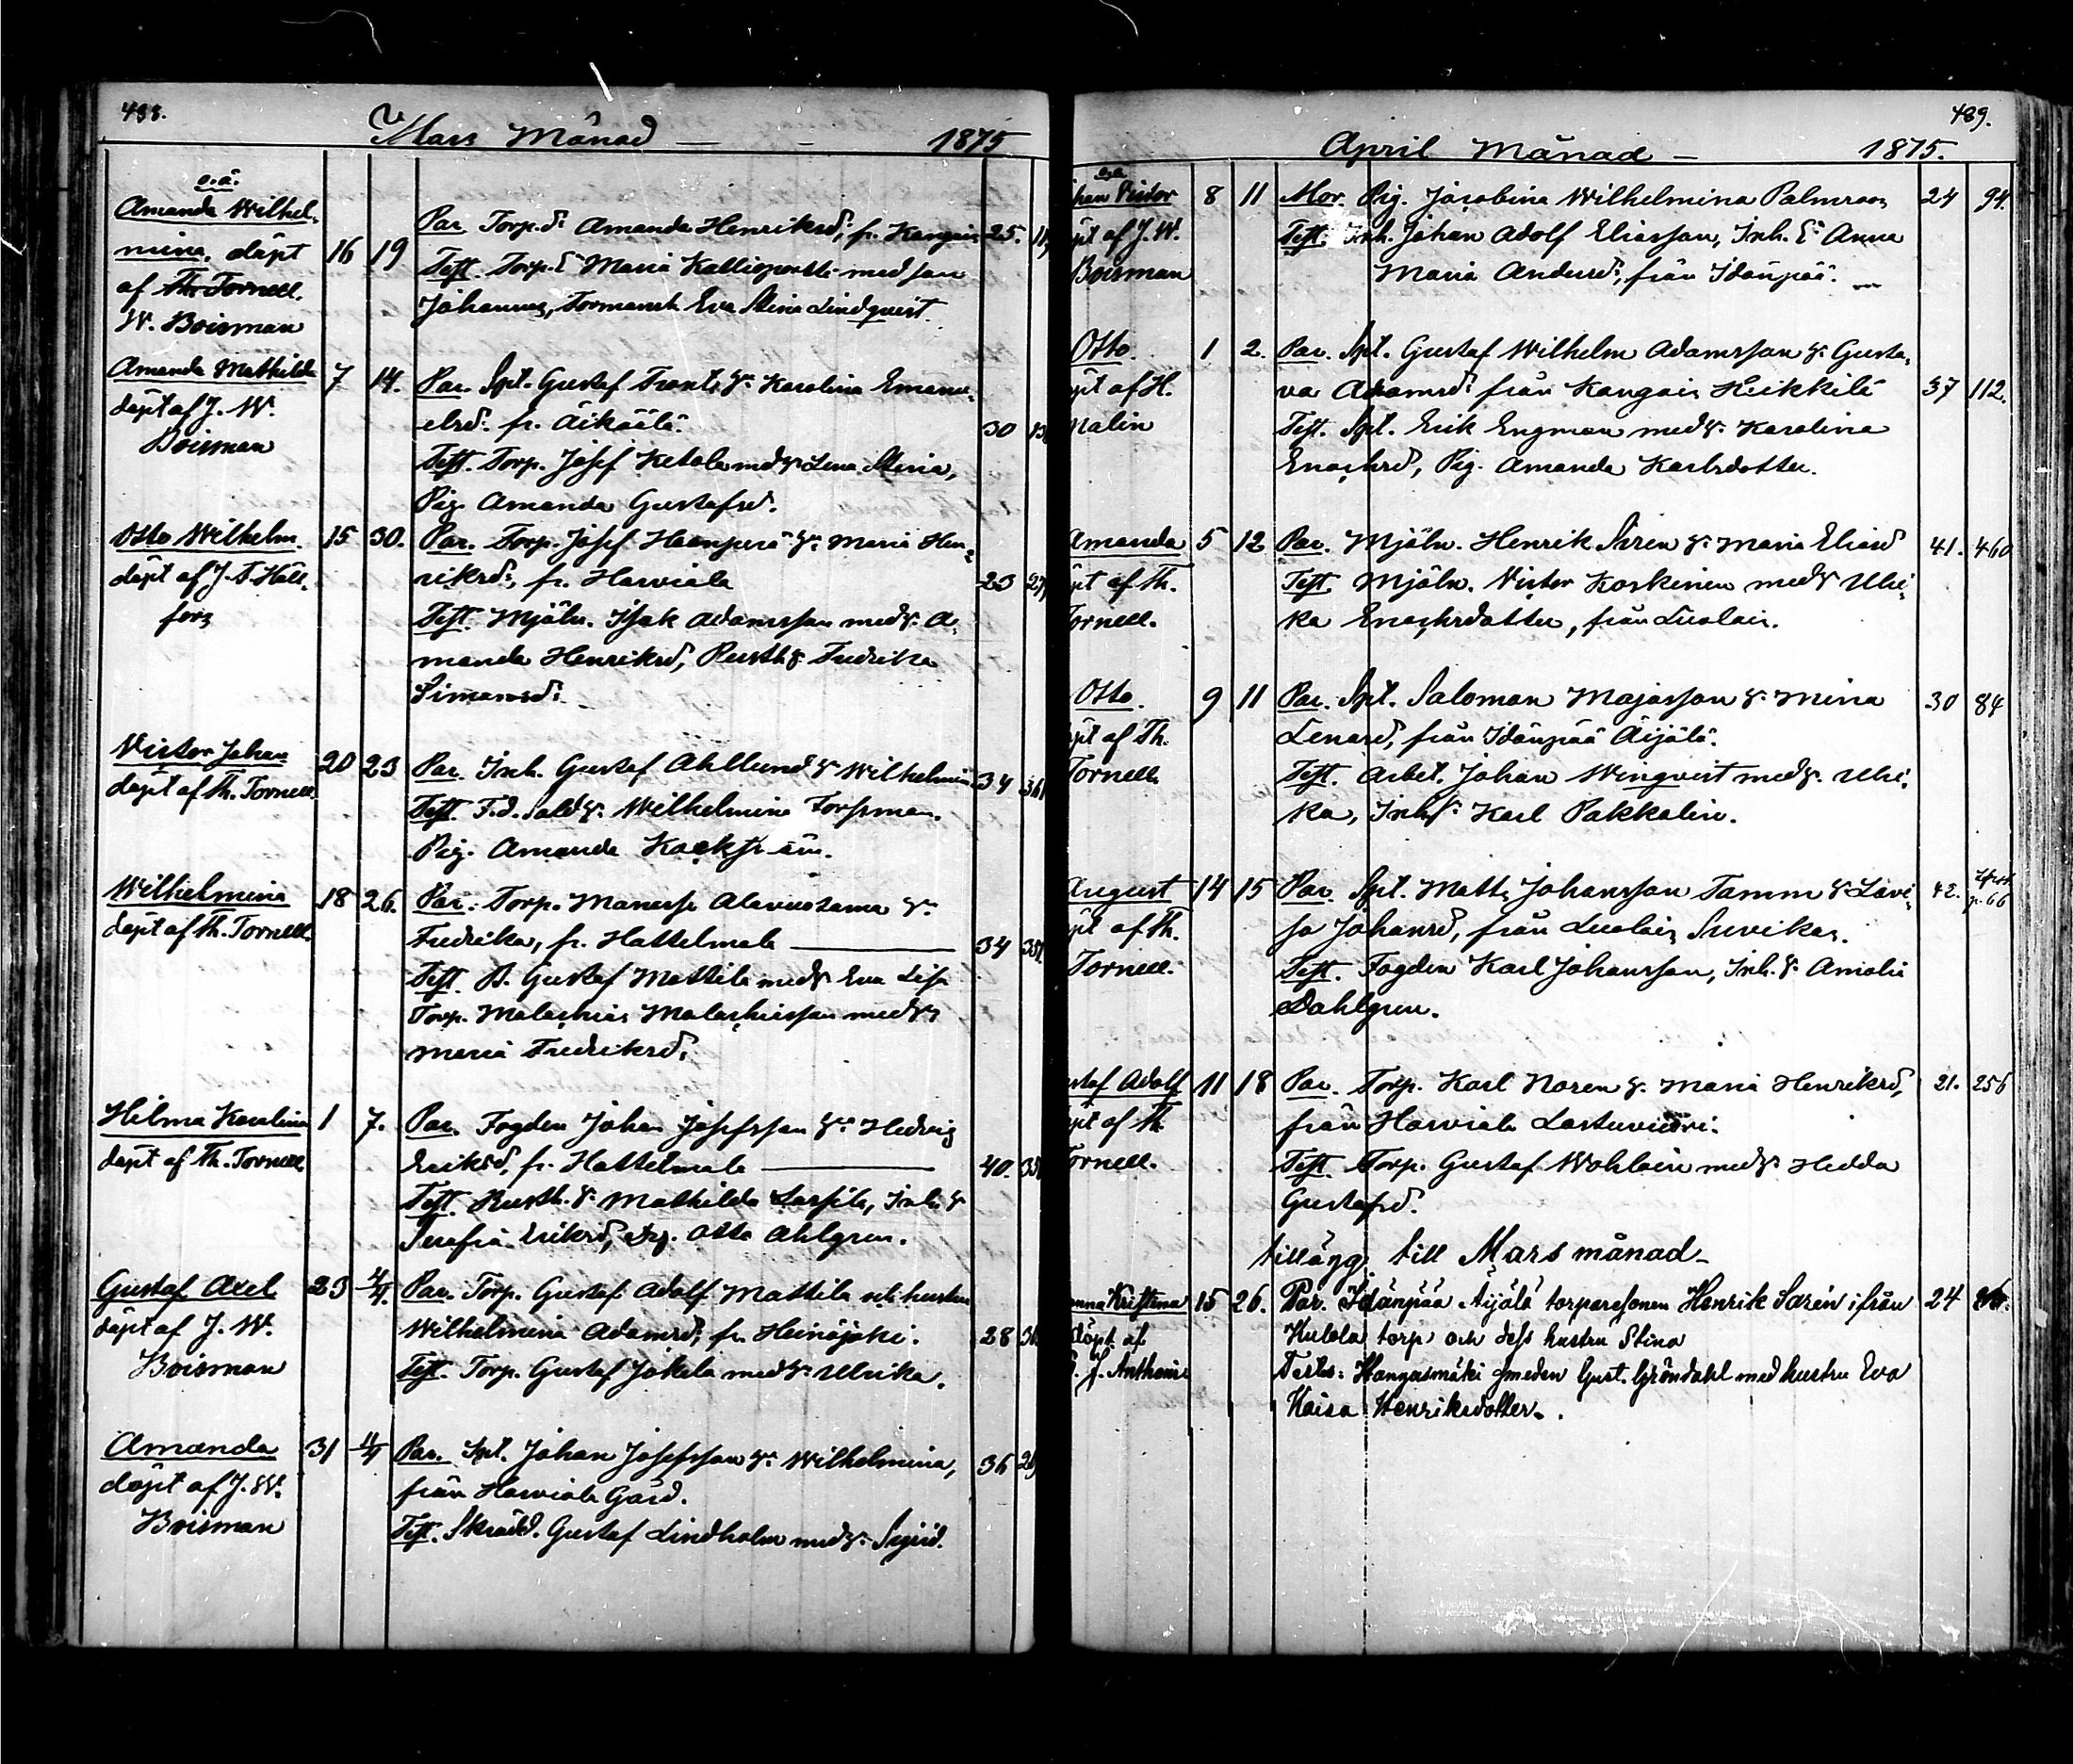 488.
Mars Månad — - 1875
o.ä.
Amanda Wilhel-
mina, döpt
af Th. Tornell.
W. Boisman
16 19
Par. Torp.d. Amanda Henriksd, fr. Kangais 25.
Test. Torp. E. Maria Kallioportti med son
Johannes, Eva Stina Lindqvist
Amanda Mathilda
döpt af J. W.
Boisman
7 14.
Par. Spt. Gustaf Frants, h. Karolina Emanu-
elsd. fr. Äikäälä. 30
Test. Torp. Josef Ketola med h. Lena Stina,
Pig. Amanda Gustafsd.
Otto Wilhelm
döpt af J. A. Häll-
fors
15 30.
Par. Torp. Josef Haanperä h. Maria Hen-
riksd, fr. Harviala 23
Test. Mjöln. Isak Adamsson med h. A-
manda Henriksd, Rusth. h. Fredrika
Simonsd.
Victor Johan
döpt af Th. Tornell.
20 23
Par. Inh. Gustaf Ahllund h. Wilhelmina 34
Test. F.d. Sold. h. Wilhelmina Forsman.
Pig. Amanda
Wilhelmina
döpt af Th. Tornell.
18 26.
Par. Torp. Manasse Alavuotama h.
Fredrika, fr. Hattelmala — 34
Test. B. Gustaf Mattila med h. Eva Lisa
Torp. Malachias Malachiasson med h.
Maria Fredriksd.
Hilma Karolina
döpt af Th. Tornell
1 7.
Par. Fogden Johan Josefsson h. Hedvig
Eriksd, fr. Hattelmala — 40.
Test. Rusth. h. Mathilda Lassila, Inh. h.
Serafia Eriksd, Drg. Otto Ahlgren.
Gustaf Axel
döpt af J. W.
Boisman
23 4/4.
Par. Torp. Gustaf Adolf Mattila och hustru
Wilhelmina Adamsd, fr. Heinäjoki. 28
Test. Torp. Gustaf Jokela med h. Ulrika.
Amanda
döpt af J. W.
Boisman
31 4/4
Par. Spt. Johan Josefsson h. Wilhelmina, 36
från Harviala Gård.
Test. Skrädd. Gustaf Lindholm med h. Sigrid.
489.
April Månad — 1875.
han Victor
pt af J. W.
Boisman
8 11
Mor. Pig. Jacobina Wilhelmina Palmroos 24 94.
Test. Inh. Johan Adolf Eliasson, Inh. E. Anna
Maria Andersd, från Idänpää.
Otto
pt af H.
Malin
1 2.
Par. Spt. Gustaf Wilhelm Adamsson h. Gusta-
va Adamsd från Kangais Heikkilä 37 112.
Test. Spt. Erik Engman med h. Karolina
Enochsd, Pig. Amanda Karlsdotter.
Amanda
pt af Th.
Tornell.
5 12
Par. Mjöln. Henrik Siren h. Maria Eliasd 41. 460
Test. Mjöln. Victor Koskinen med h. Ulri-
ka Enochsdotter, från Luolais.
Otto.
pt af Th.
Tornell.
9 11
Par. Spt. Salomon Majasson h. Mina 30 84
Lenasd, från Idänpää Äijälä.
Test. Arbet. Johan Winqvist med h. Ulri-
ka, Inh. Karl Pakkalin.
August
pt af Th.
Tornell.
14 15
Par. Spt. Matts Johansson Tamm h. Lovi- 42.
sa Johansd, från Luolais Suvikas. p. 66
Test. Fogden Karl Johansson, Inh. h. Amalia
Dahlgren.
staf Adolf
pt af Th.
Tornell.
11 18
Par. Torp. Karl Noren h. Maria Henriksd, 21. 256
från Harviala Lastuvuori.
Test. Torp. Gustaf Wahlain med h. Hedda
Gustafsd.
tillägg till Mars månad—
anna Kristina
döpt af
J. Anthoni
15 26.
Par. Idänpää Äijälä torparesonen Henrik Sarén ifrån 24
Kulola torp och dess hustru Stina
Testes: Hangasmäki smeden Gust. Gröndahl med hustru Eva
Kaisa Henriksdotter.